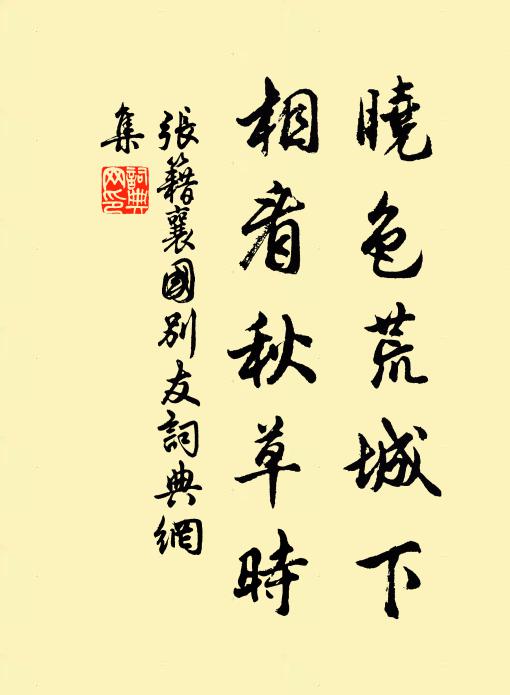 曉色荒城下
相看秋草時
張籍襄國別友詞典網
集
詞典
网印